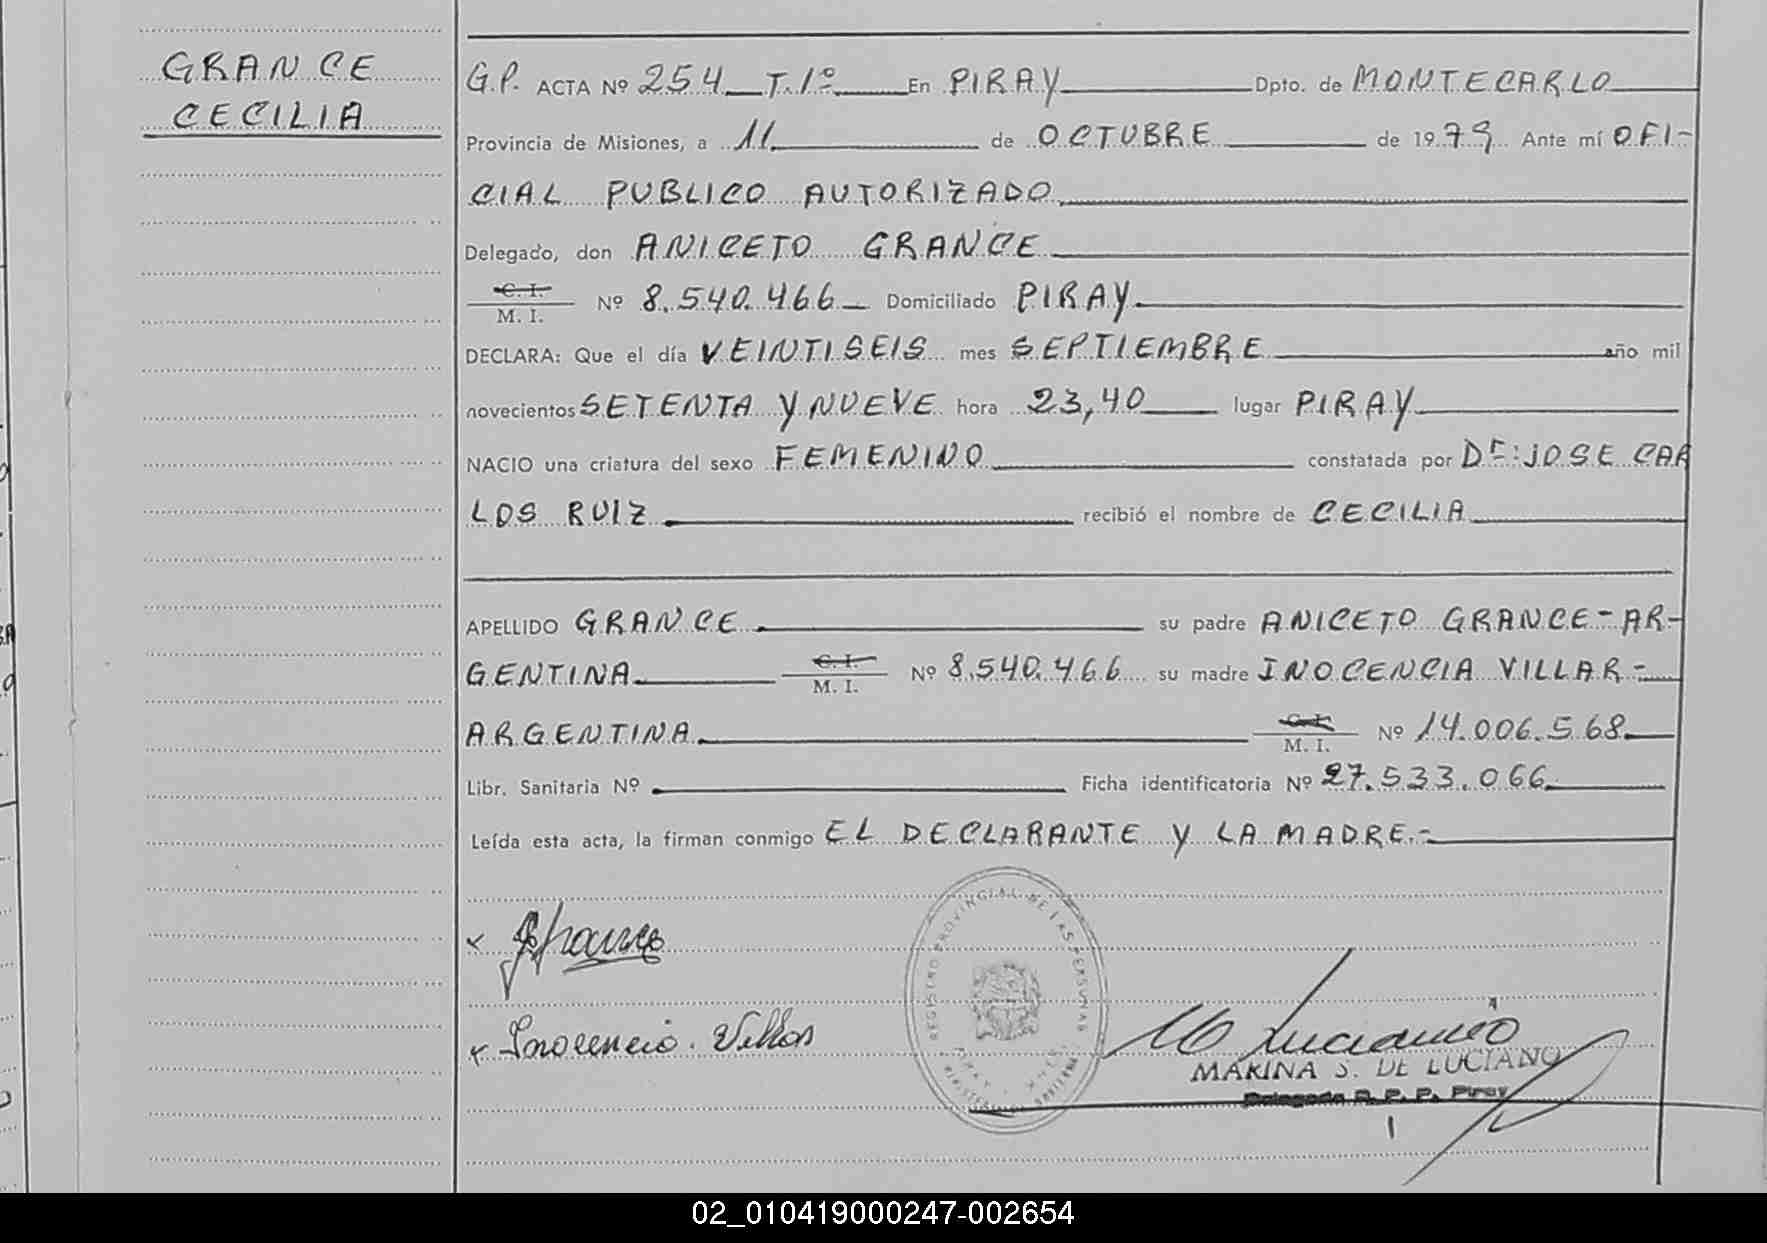 GRANCE
CECILIA
G.P. ACTA Nº 254 T.1º En PIRAY Dpto. de MONTECARLO
Provincia de Misiones, a 11 de OCTUBRE de 1979 Ante mí OFI-
CIAL PUBLICO AUTORIZADO
Delegado, don ANICETO GRANCE
C. I.
M. I. Nº 8.540.466 Domiciliado PIRAY
DECLARA: Que el día VEINTISEIS mes SEPTIEMBRE año mil
novecientos SETENTA Y NUEVE hora 23,40 lugar PIRAY
NACIO una criatura del sexo FEMENINO constatada por Dr: JOSE CAR
LOS RUIZ recibió el nombre de CECILIA
APELLIDO GRANCE su padre ANICETO GRANCE - AR-
GENTINA C. I. M. I. Nº 8.540.466 su madre INOCENCIA VILLAR -
ARGENTINA C. I. M. I. Nº 14.006.568
Libr. Sanitaria Nº Ficha identificatoria Nº 27.533.066
Leída esta acta, la firman conmigo EL DECLARANTE Y LA MADRE.-
REGISTRO PROVINCIAL DE LAS PERSONAS
MARINA S. DE LUCIANO
Delegada R. P. P. Piray
02_010419000247-002654